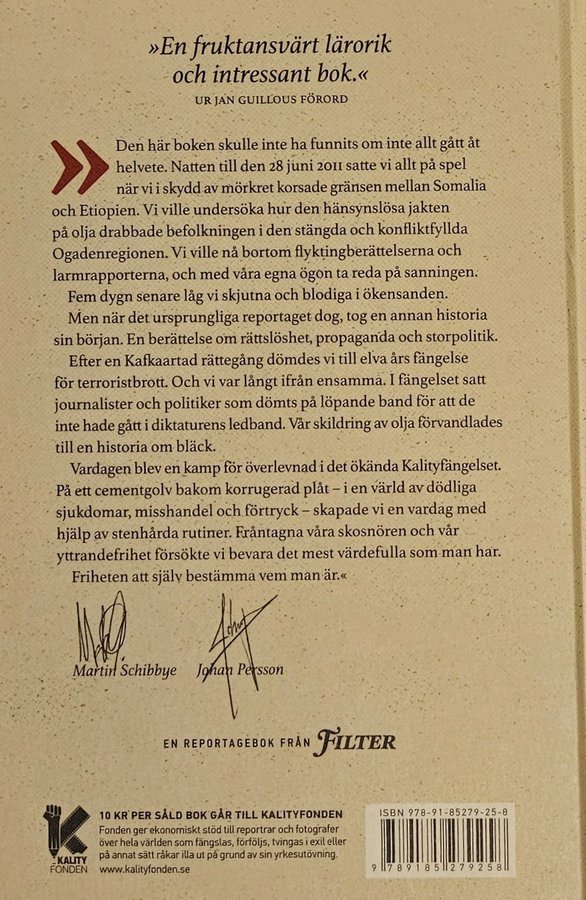 »En fruktansvärt lärorik
och intressant bok.«
UR JAN GUILLOUS FÖRORD
» Den här boken skulle inte ha funnits om inte allt gått åt
helvete. Natten till den 28 juni 2011 satte vi allt på spel
när vi i skydd av mörkret korsade gränsen mellan Somalia
och Etiopien. Vi ville undersöka hur den hänsynslösa jakten
på olja drabbade befolkningen i den stängda och konfliktfyllda
Ogadenregionen. Vi ville nå bortom flyktingberättelserna och
larmrapporterna, och med våra egna ögon ta reda på sanningen.
Fem dygn senare låg vi skjutna och blodiga i ökensanden.
Men när det ursprungliga reportaget dog, tog en annan historia
sin början. En berättelse om rättslöshet, propaganda och storpolitik.
Efter en Kafkaartad rättegång dömdes vi till elva års fängelse
för terroristbrott. Och vi var långt ifrån ensamma. I fängelset satt
journalister och politiker som dömts på löpande band för att de
inte hade gått i diktaturens ledband. Vår skildring av olja förvandlades
till en historia om bläck.
Vardagen blev en kamp för överlevnad i det ökända Kalityfängelset.
På ett cementgolv bakom korrugerad plåt – i en värld av dödliga
sjukdomar, misshandel och förtryck – skapade vi en vardag med
hjälp av stenhårda rutiner. Fråntagna våra skosnören och vår
yttrandefrihet försökte vi bevara det mest värdefulla som man har.
Friheten att själv bestämma vem man är.«
Martin Schibbye Johan Persson
EN REPORTAGEBOK FRÅN FILTER
10 KR PER SÅLD BOK GÅR TILL KALITYFONDEN
Fonden ger ekonomiskt stöd till reportrar och fotografer
över hela världen som fängslas, förföljs, tvingas i exil eller
på annat sätt råkar illa ut på grund av sin yrkesutövning.
www.kalityfonden.se
KALITY
FONDEN
ISBN 978-91-85279-25-8
9 789185 279258